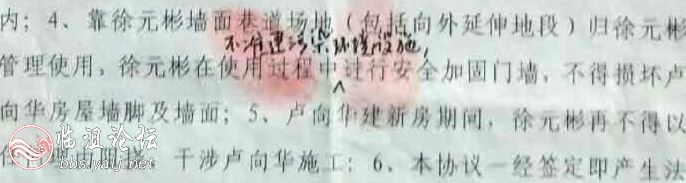 内；4、靠徐元彬墙面巷道场地（包括向外延伸地段）归徐元彬
不准建污染环境设施，
管理使用，徐元彬在使用过程中进行安全加固门墙，不得损坏卢
向华房屋墙脚及墙面；5、卢向华建新房期间，徐元彬再不得以
任 理由阻挠、干涉卢向华施工；6、本协议一经签定即产生法
临沮论坛
bbs.yajyd.net